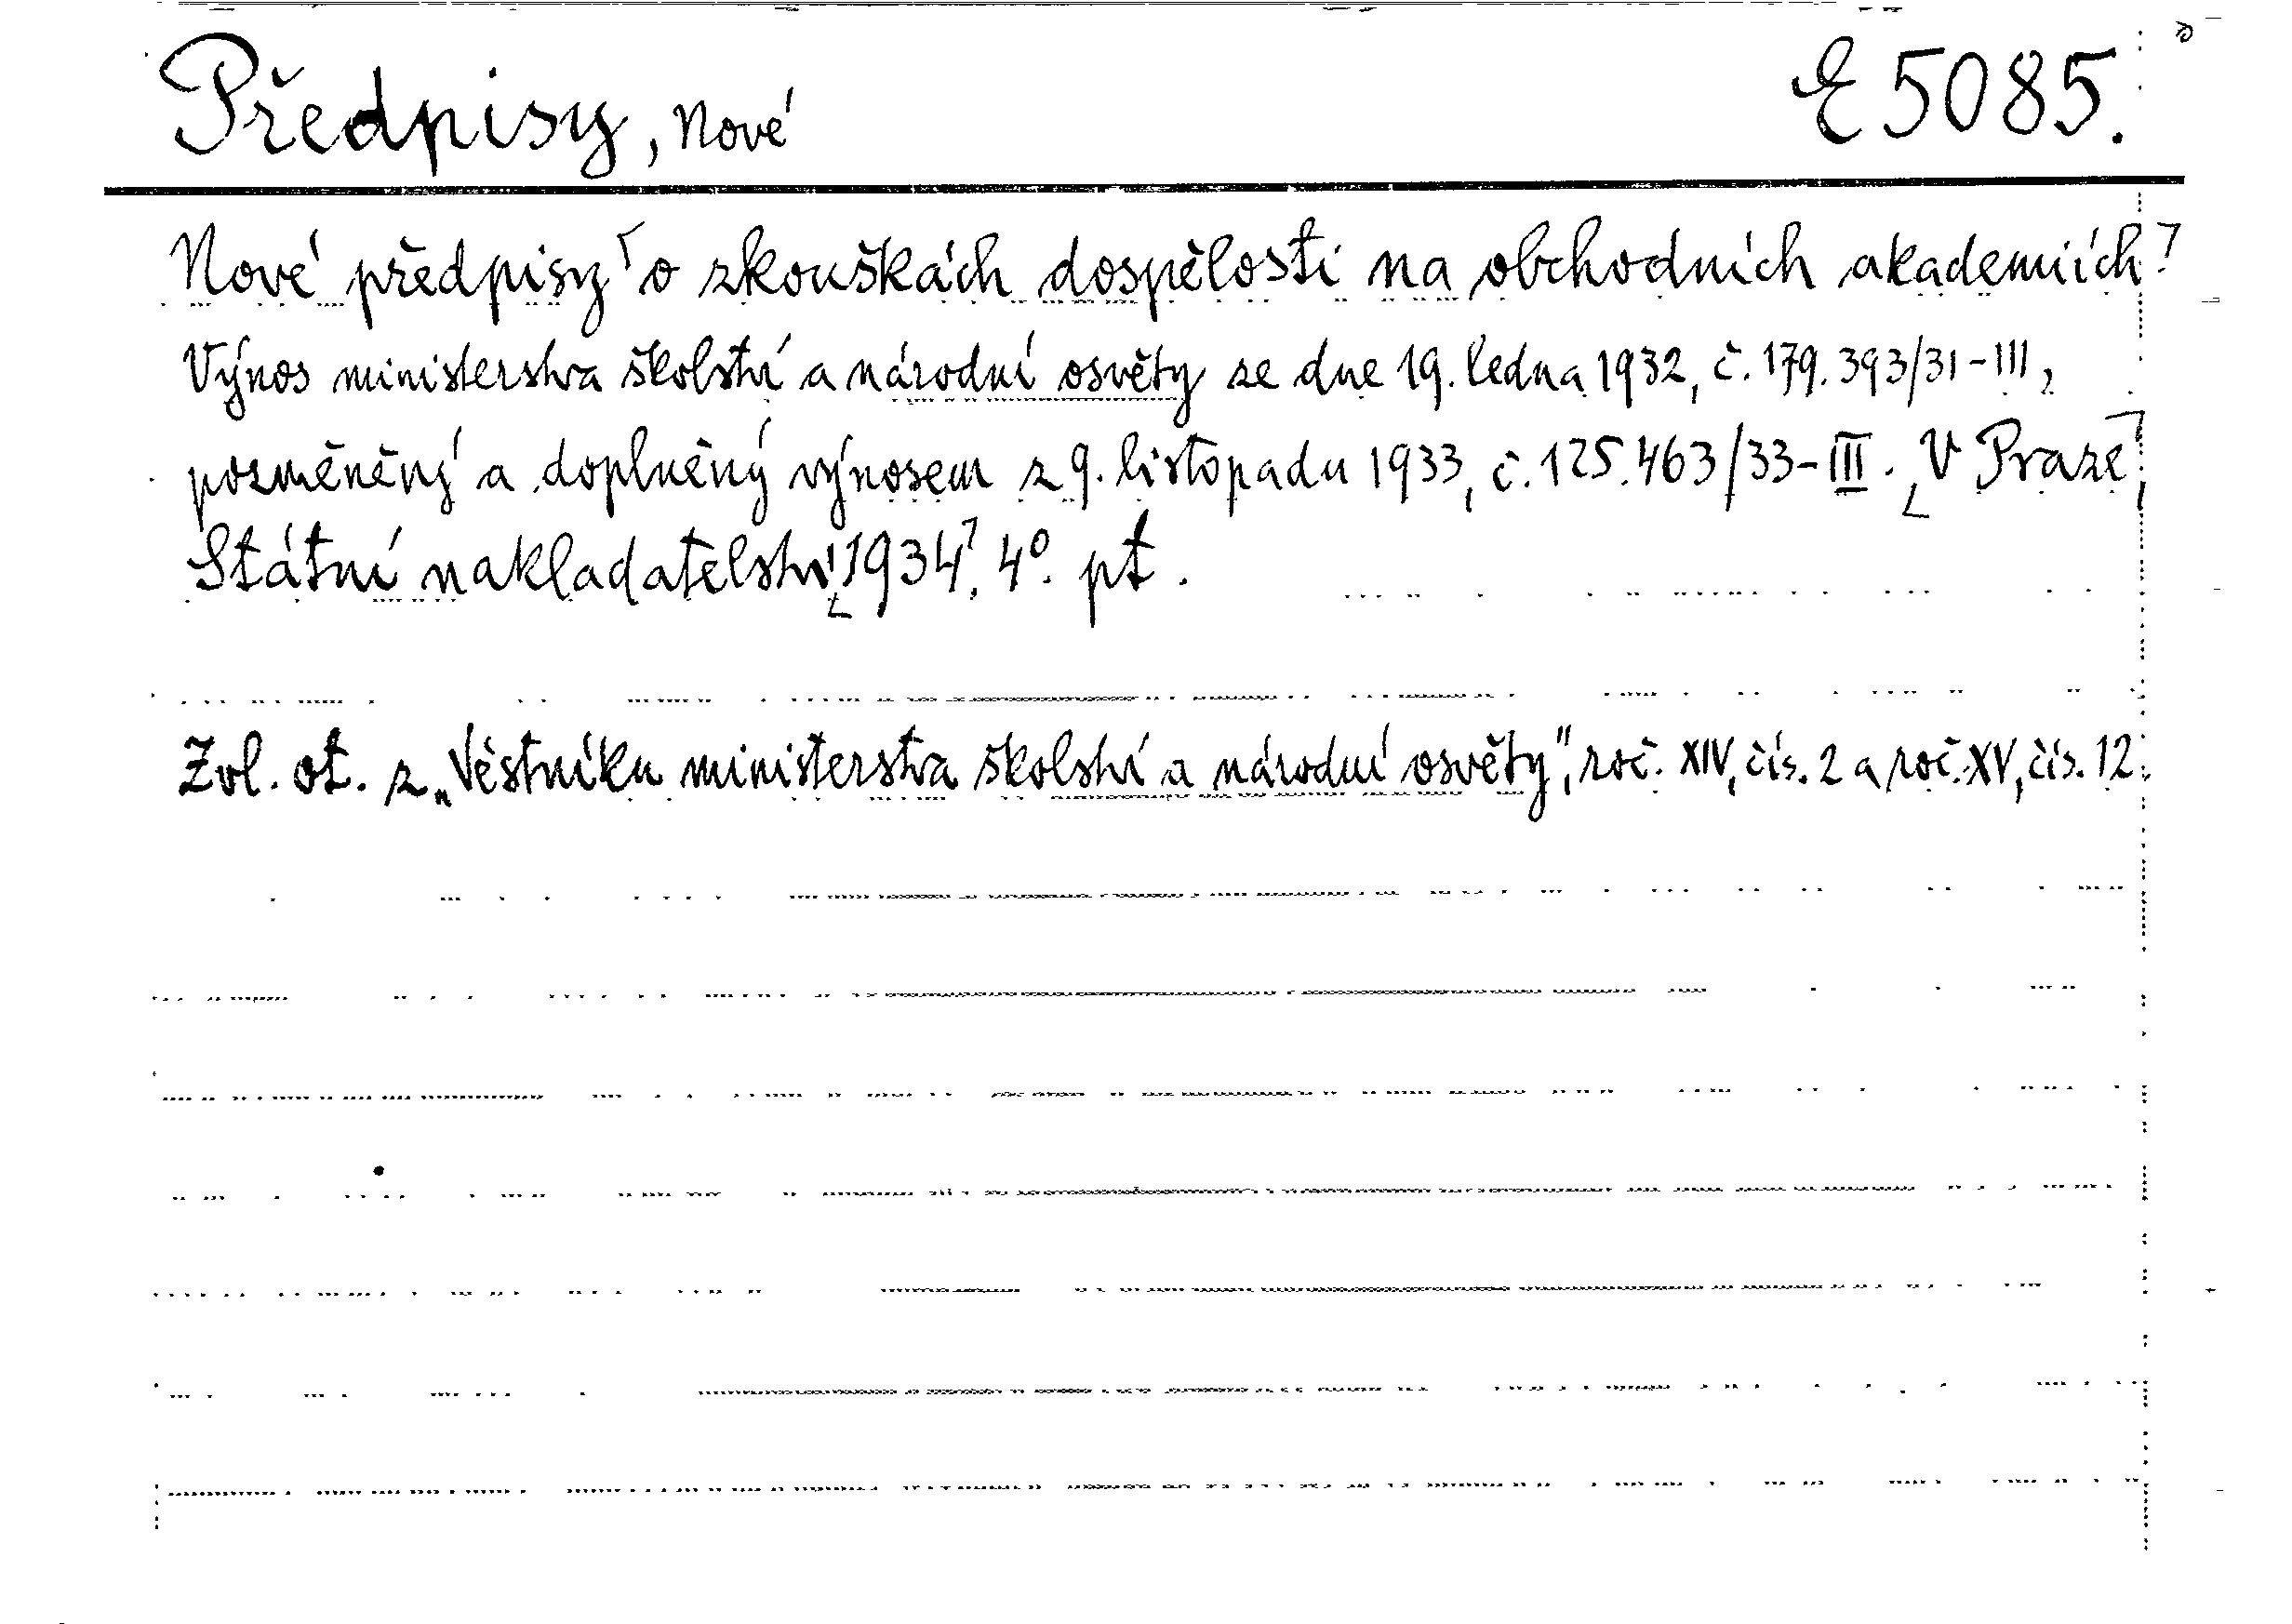 Předpisy, Nové E 5085.
Nové předpisy o zkouškách dospělosti na obchodních akademiích
Výnos ministerstva školství a národní osvěty ze dne 19. ledna 1932, č. 179.393/31-III,
pozměněný a doplněný výnosem z 9. listopadu 1933, č. 125.463/33-III. V Praze
Státní nakladatelství 1934. 4°. pt.
Zvl. ot. z „Věstníku ministerstva školství a národní osvěty", roč. XIV, čís. 2 a roč. XV, čís. 12.